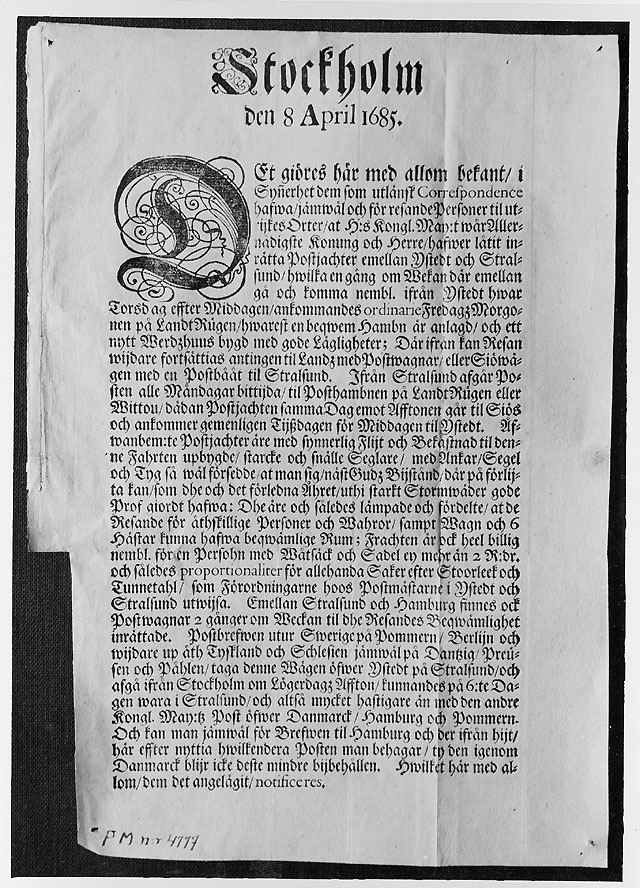 Stockholm
den 8 April 1685.
DEt giöres här med allom bekant/ i
Syñerhet dem som utlänsk Correspondence
hafwa/jämwäl och för resande Personer til ut-
rijkes Orter/at H:s Kongl. May:t wår Aller-
nådigste Konung och Herre/hafwer låtit in-
rätta Postjachter emellan Ystedt och Stral-
sund/hwilka en gång om Wekan där emellan
gå och komma nembl. ifrån Ystedt hwar
Torsdag effter Middagen/ankommandes ordinarie Fredagz Morgo-
nen på Landt Rügen/hwarest en beqwem Hambn är anlagd/ och ett
nytt Werdzhuus bygd med gode Lägligheter; Där ifran kan Resan
wijdare fortsättias antingen til Landz med Postwagnar/ eller Siöwä-
gen med en Postbååt til Stralsund. Ifrån Stralsund afgår Po-
sten alle Måndagar bittijda/ til Posthambnen på Landt Rügen eller
Wittou/ dädan Postjachten samma Dag emot Afftonen går til Siös
och ankommer gemenligen Tijßdagen för Middagen til Ystedt. Af-
wanbem:te Postjachter äre med synnerlig Flijt och Bekåstnad til den-
ne Fahrten upbygde/ starcke och snälle Seglare/ med Ankar/ Segel
och Tyg så wäl försedde/at man sig/näst Gudz Bijstånd/där på förlij-
ta kan/som dhe och det förledna Åhret/uthi starkt Stormwäder gode
Prof giordt hafwa: Dhe äre och således lämpade och fördelte/ at de
Resande för åthskillige Personer och Wahror/ sampt Wagn och 6
Hästar kunna hafwa beqwämlige Rum; Frachten är ock heel billig
nembl. för en Persohn med Wätsäck och Sadel ey mehr än 2 R:dr.
och således proportionaliter för allehanda Saker efter Stoorleek och
Tunnetahl/ som Förordningarne hoos Postmästarne i Ystedt och
Stralsund utwijsa. Emellan Stralsund och Hamburg finnes ock
Postwagnar 2 gånger om Weckan til dhe Resandes Beqwämlighet
inrättade. Postbrefwen utur Swerige på Pommern/ Berlijn och
wijdare up åth Tyskland och Schlesien jämwäl på Dantzig/ Preüs-
sen och Påhlen/ taga denne Wägen öfwer Ystedt på Stralsund/och
afgå ifrån Stockholm om Lögerdagz Affton/ kunnandes på 6:te Da-
gen wara i Stralsund/ och altså mycket hastigare än med den andre
Kongl. May:tz Post öfwer Danmarck/ Hamburg och Pommern.
Och kan man jämwäl för Brefwen til Hamburg och der ifrån hijt/
här effter nyttia hwilkendera Posten man behagar/ ty den igenom
Danmarck blijr icke deste mindre bijbehållen. Hwilket här med al-
lom/ dem det angelägit/ notificeres.
P M nr 4777